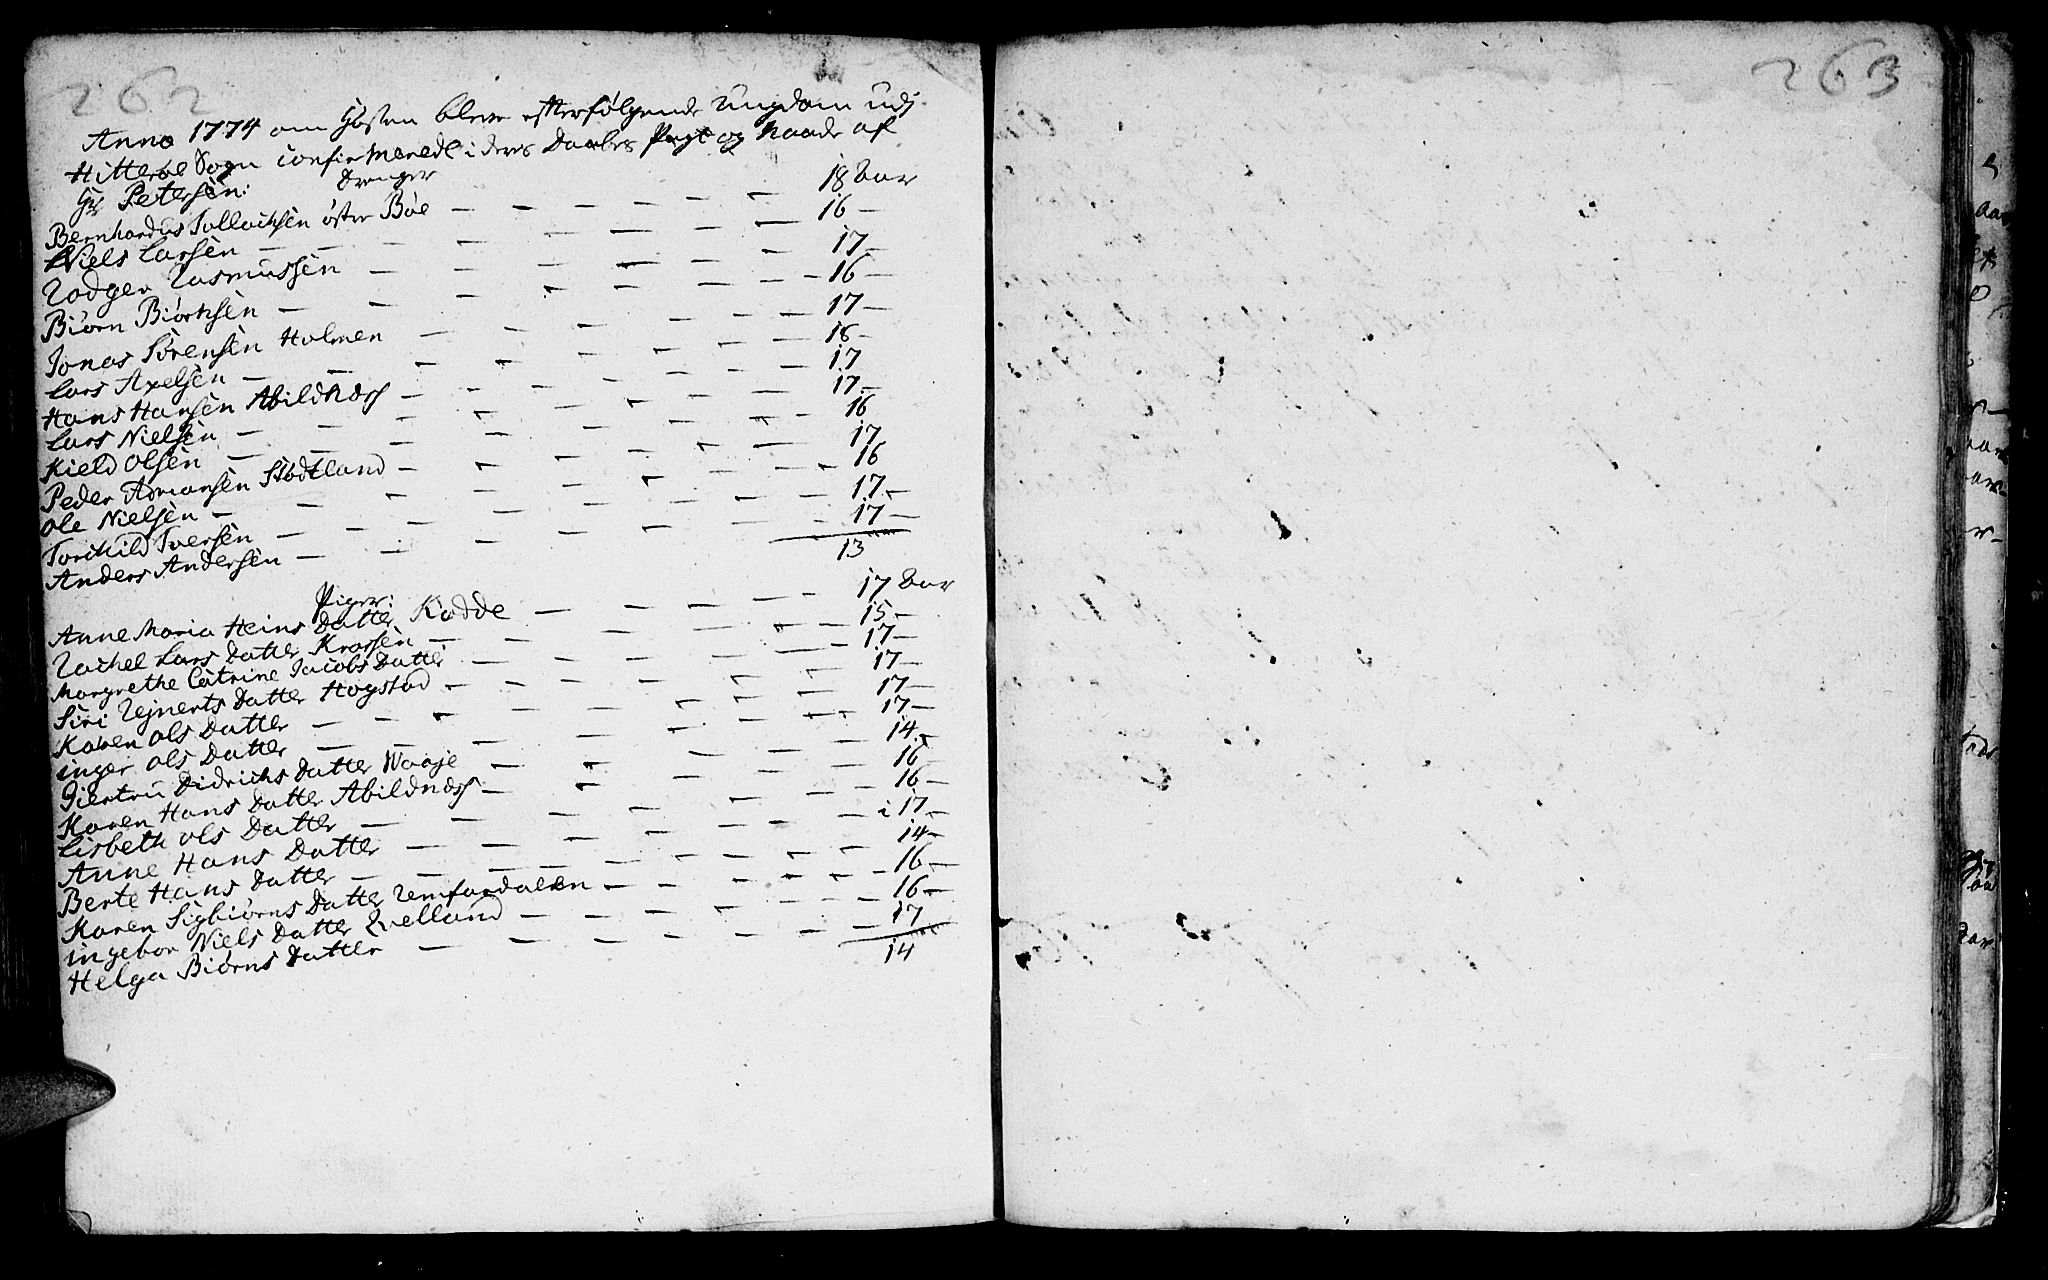 262
Anno 1774 om Høsten bleve efterfølgende Ungdom udj
Hitteröe Sogn confirmerede i deres Daabes Pagt og Naade af
Hr Petersen:
Drenger
Bernhardus Tollachsen öster Böe — 18 Aar
Niels Larsen — 16 —
Rodger Rasmussen — 17 —
Biörn Biörnsen — 16 —
Jonas Sörensen Holmen — 17 —
Lars Axelsen — 16 —
Hans Hansen Abildnæss — 17
Lars Nielsen — 17 —
Kield Olsen — 16
Peder Adriansen Stödtland — 17
Ole Nielsen — 16
Torchild Iversen — 17 —
Anders Andersen — 17 —
13
Piger:
Anne Maria Heins Datter Kadde — 17 Aar
Rachel Lars Datter — 15 —
Margrethe Catrine Jacobs Datter — 17 —
Siri Rejnerts Datter Hogstad — 17 —
Karen Ols Datter — 17 —
inger Ols Datter — 17 —
Giertru Didrichs Datter Waaje — 14 —
Karen Hans Datter Abildnæss — 16
Lisbeth Ols Datter — 16 —
Anne Hans Datter — 17 —
Berte Hans Datter — 14 —
Karen Sigbiörns Datter — 16 —
ingebor Niels Datter — 16 —
Helga Biörns Datter — 17
14
263